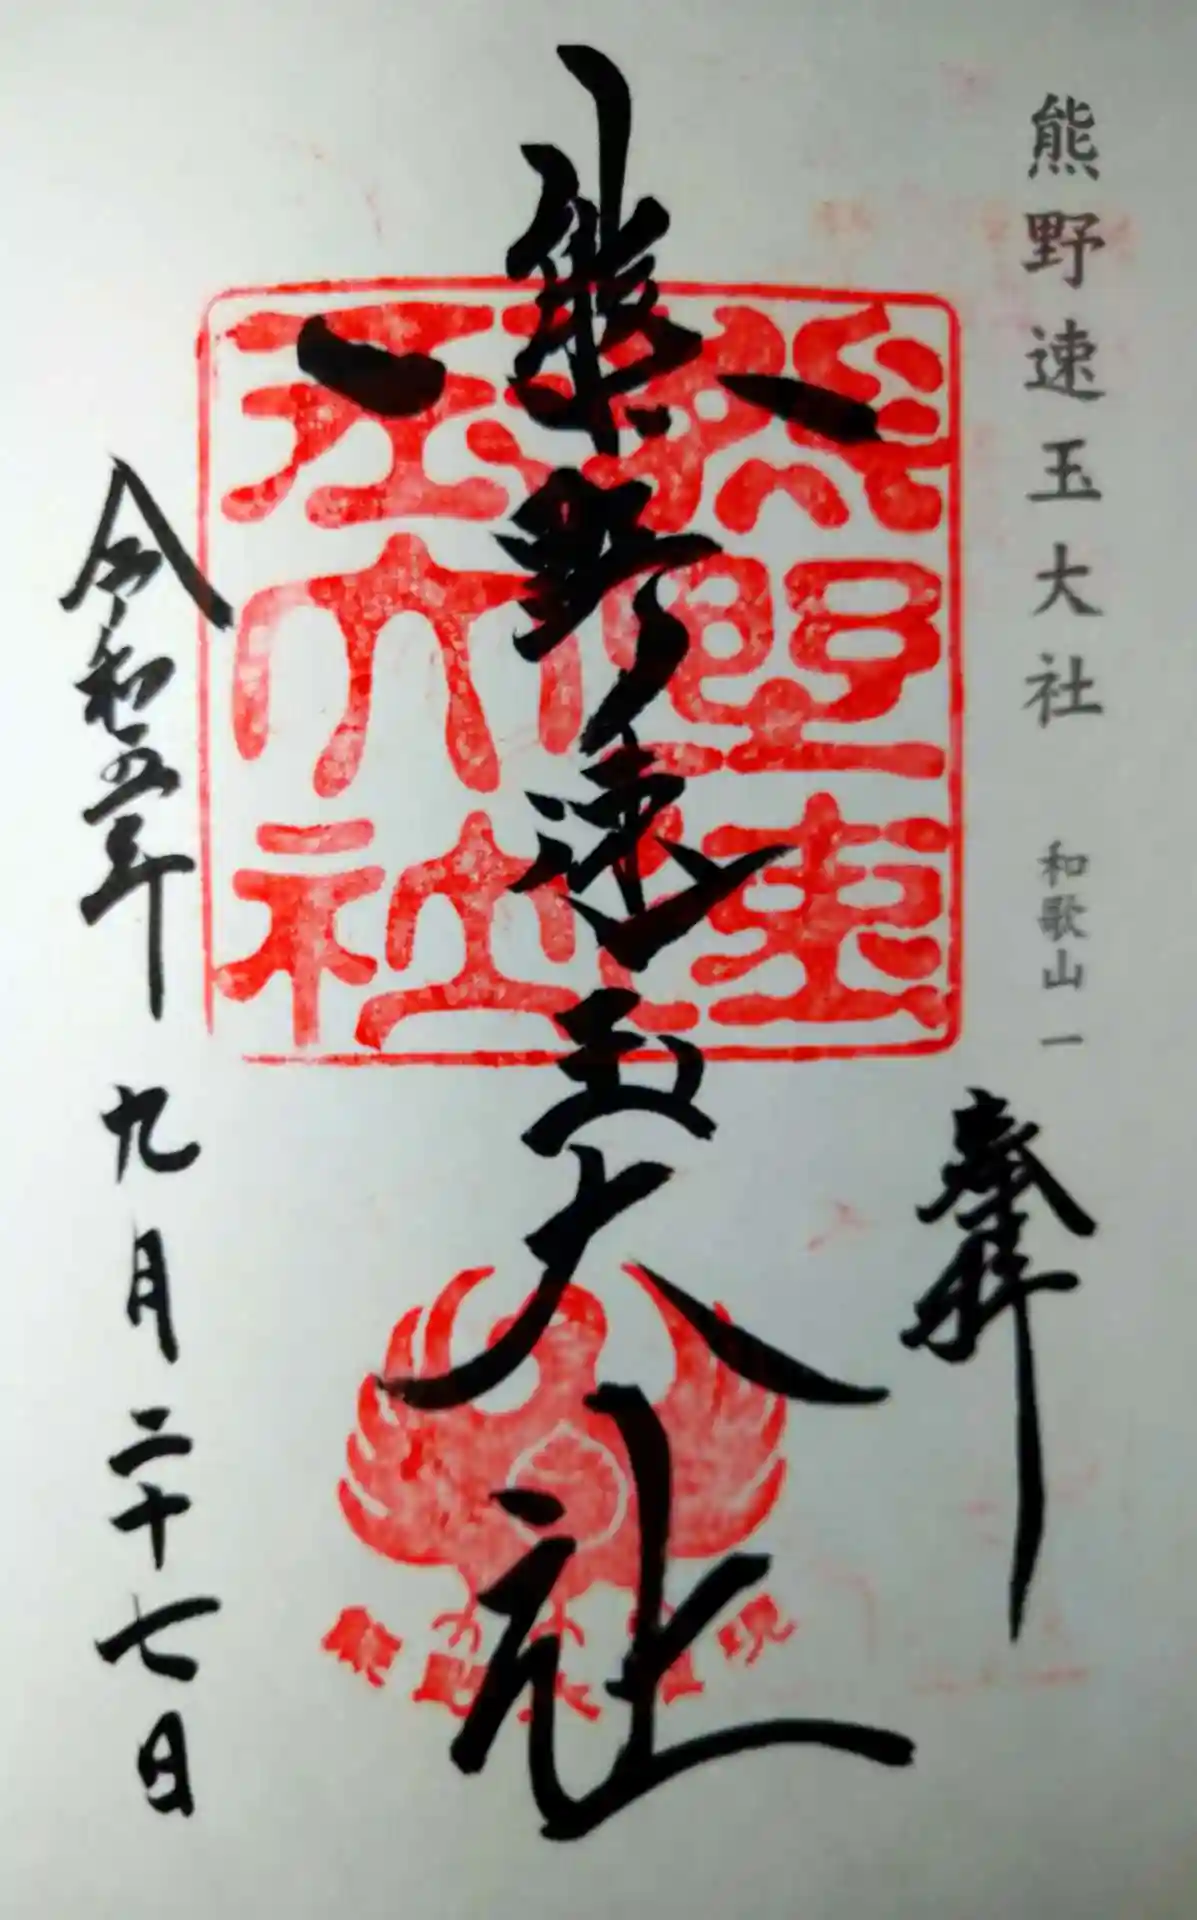 熊野速玉大社 和歌山一
奉拝
熊野速玉大社
熊野速玉大社
熊野大権現
令和五年 九月二十七日